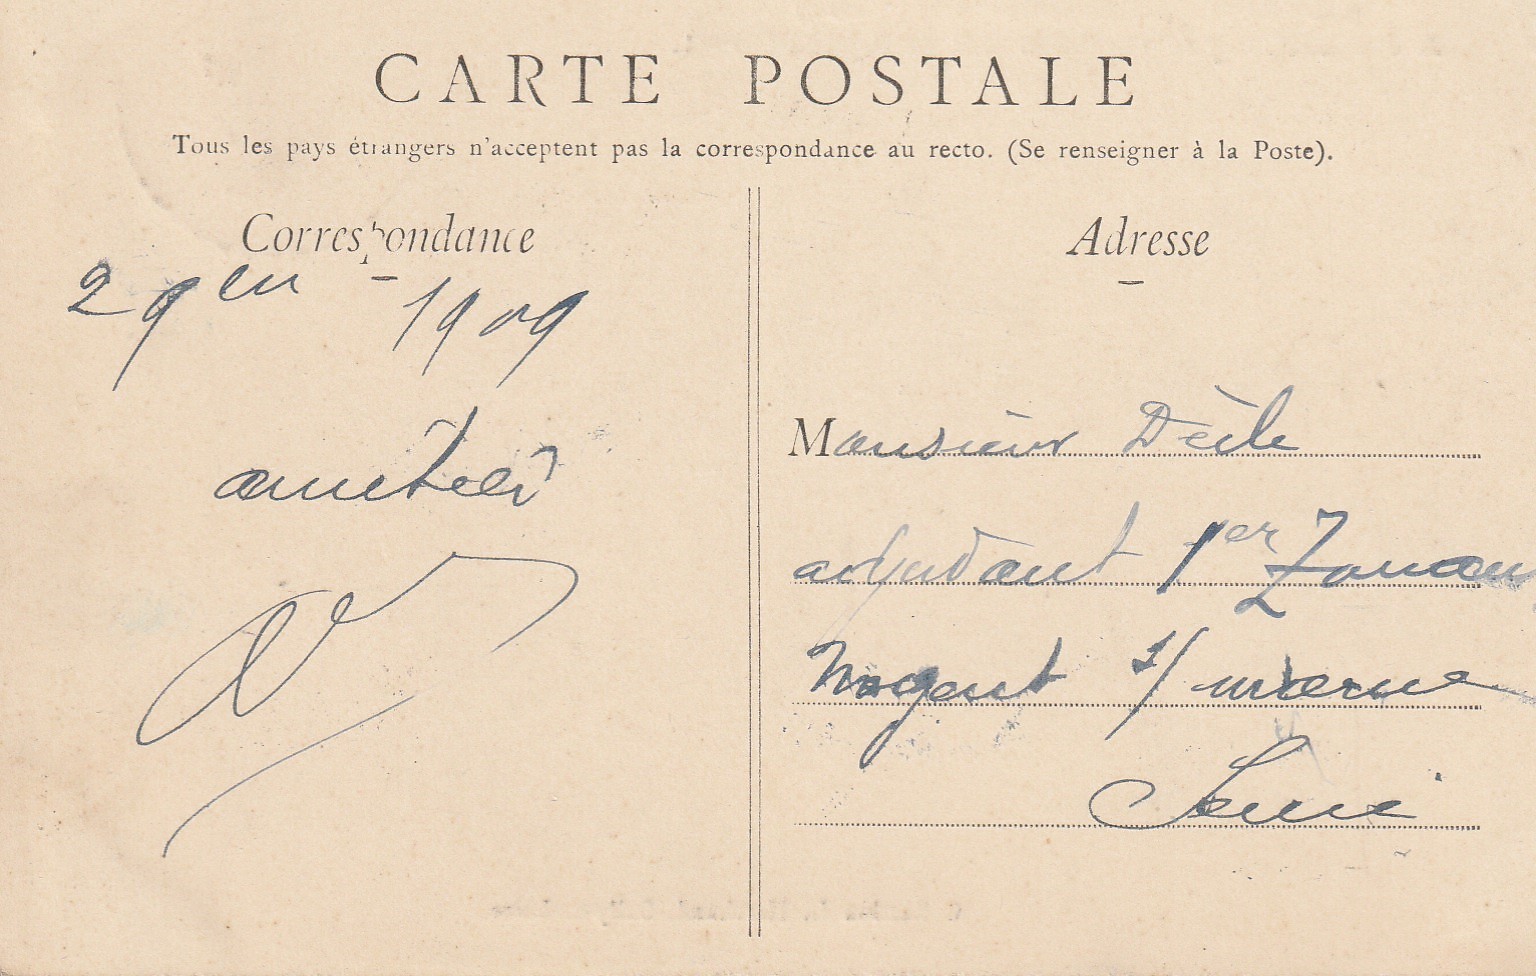 CARTE POSTALE
Tous les pays étrangers n'acceptent pas la correspondance au recto. (Se renseigner à la Poste).
Correspondance
Adresse
29 1909
amitiés
Monsieur
adjudant 1er Zouaves
Nogent s/ marne
Seine